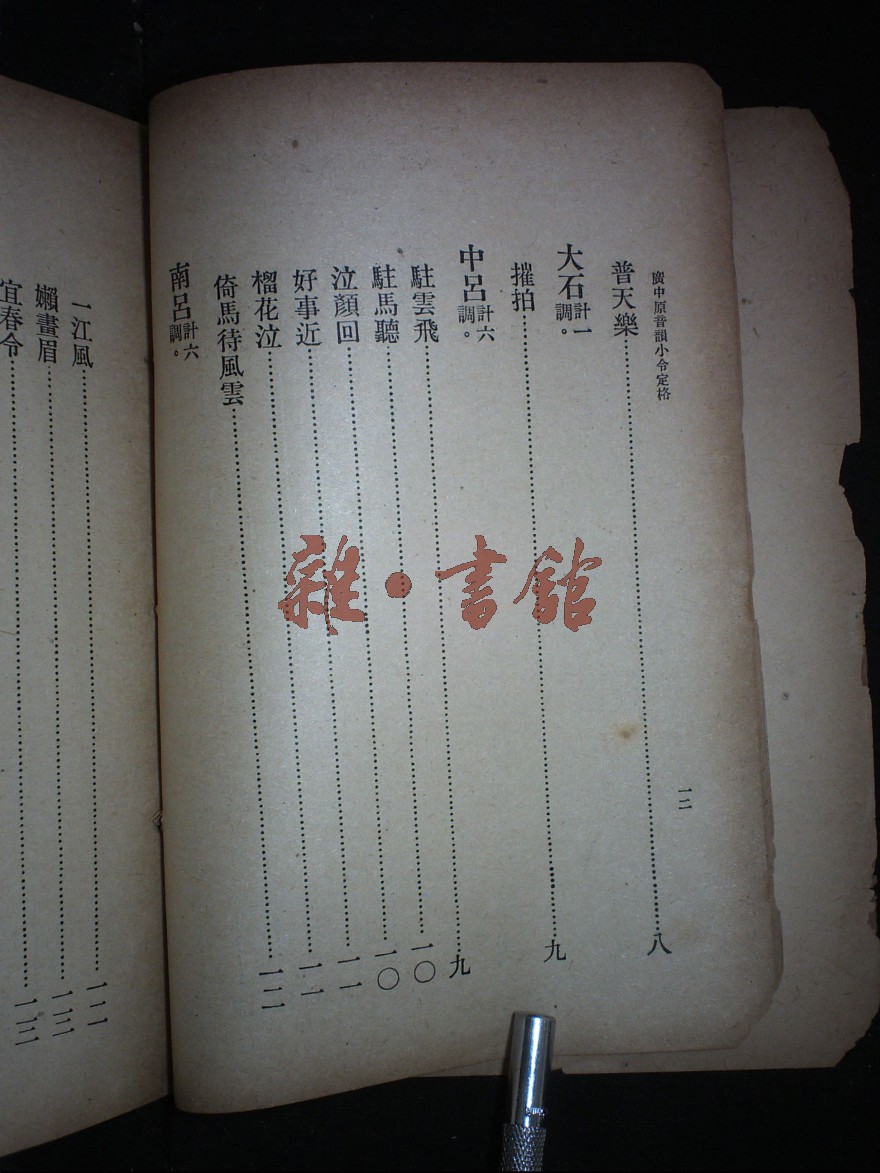 廣中原音韻小令定格
一二
普天樂……八
大石計一調。
摧拍……九
中呂計六調。
駐雲飛……九
駐馬聽……一〇
泣顏回……一〇
好事近……一一
榴花泣……一一
倚馬待風雲……一二
南呂計六調。
一江風……一二
嬾畫眉……一三
宜春令……一三
雜·書館